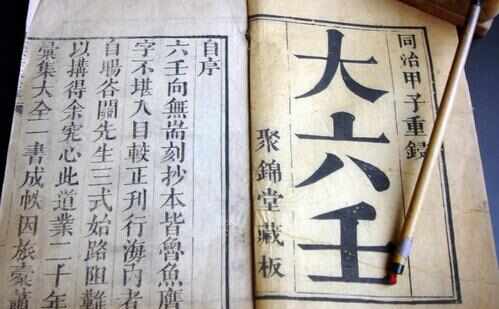 同治甲子重
大六壬
聚錦堂藏板
自序
六壬向無耑刻抄本皆魯魚
字不堪入目較正刊行海內者
自暘谷關先生三式始路阻難
以搆得余究心此道業二十年
彙集大全一書成帙因旅